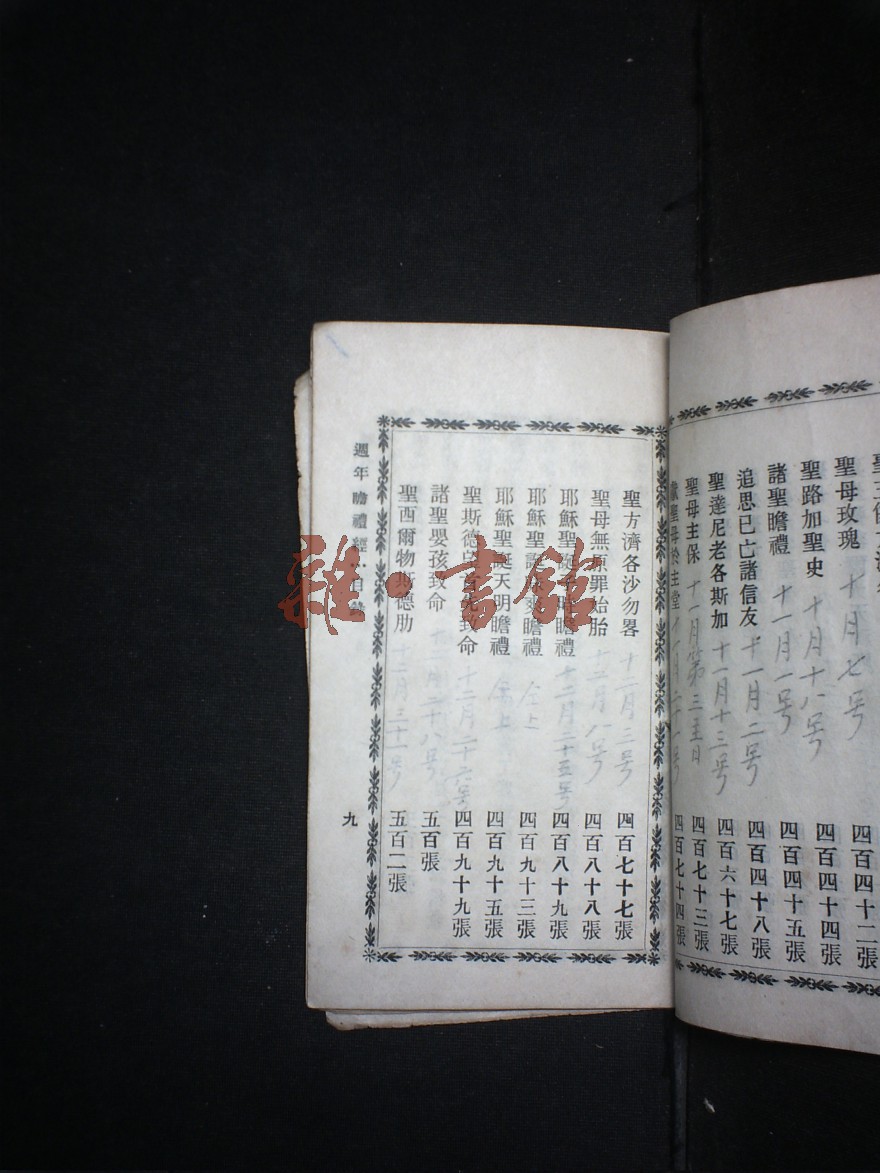 聖母玫瑰 十月七号 四百四十二張
聖路加聖史 十月十八号 四百四十四張
諸聖瞻禮 十一月一号 四百四十五張
追思已亡諸信友 十一月二号 四百四十八張
聖達尼老各斯加 十一月十三号 四百六十七張
聖母主保 十一月第三主日 四百七十三張
聖母於主堂 十一月二十一号 四百七十四張
聖方濟各沙勿畧 十二月三号 四百七十七張
聖母無原罪始胎 十二月八号 四百八十八張
耶穌聖誕 瞻禮 十二月二十五号 四百八十九張
耶穌聖誕 瞻禮 仝上 四百九十三張
耶穌聖誕天明瞻禮 仝上 四百九十五張
聖斯德 致命 十二月二十六号 四百九十九張
諸聖嬰孩致命 十二月二十八号 五百張
聖西爾物斯德肋 十二月三十一号 五百二張
週年瞻禮經 目
九
雜·書館